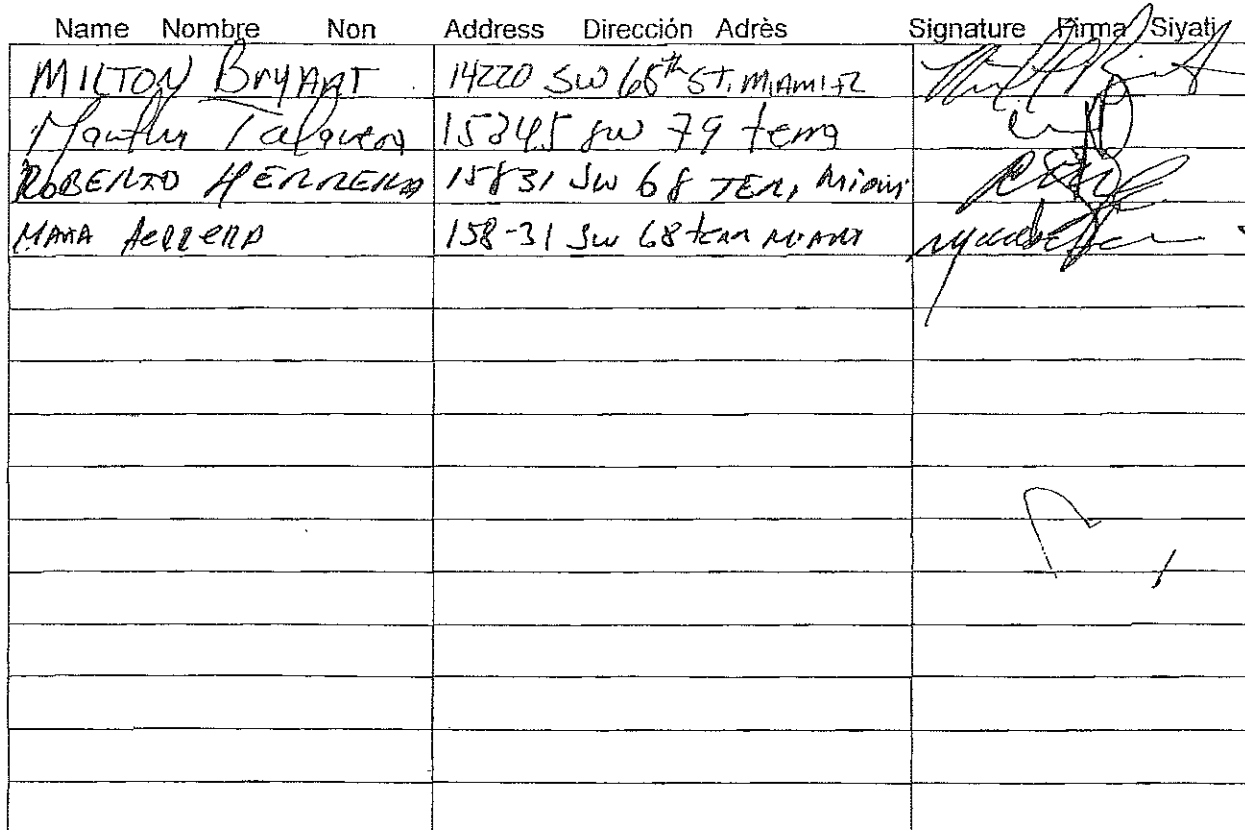 Name Nombre Non Address Dirección Adrès Signature Firma Siyati
MILTON BryANT 14220 SW 65th ST. MIAMI FL
Martha Talavera 15245 SW 79 terra
ROBERTO HERRERA 15831 SW 68 TER, Miami
HERRERA 158-31 SW 68 terr MIAMI